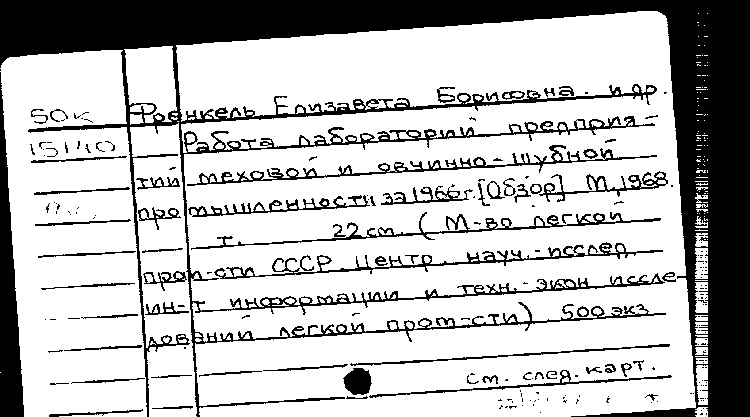 50к Френкель Елизавета Борисовна и др.
15140 Работа лабораторий предприя-
тий меховой и овчинно-шубной
промышленности за 1966 г. [Обзор] М., 1968.
т. 22 см. (М-во легкой
пром-сти СССР. Центр. науч.-исслед.
ин-т информации и техн.-экон. иссле-
дований легкой пром-сти) 500 экз
См. след. карт.